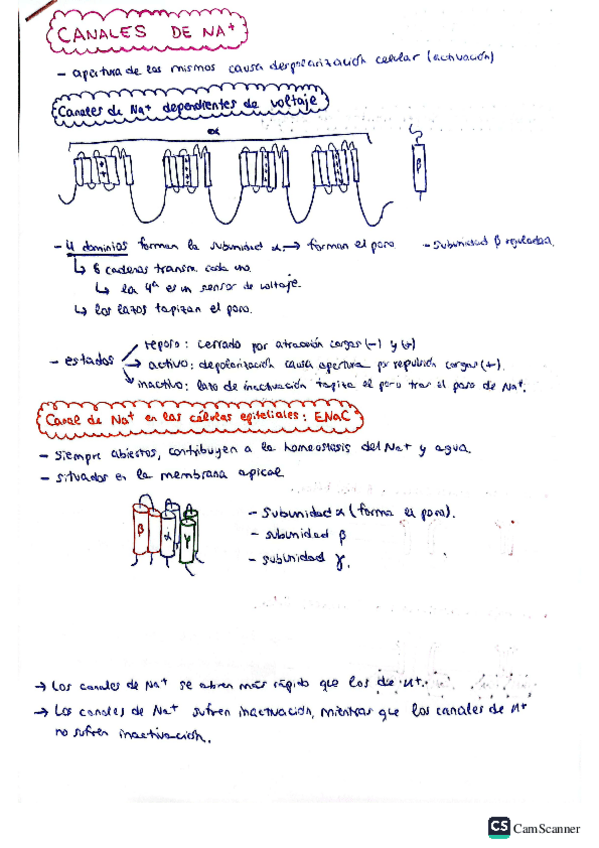 CANALES DE NA⁺
- apertura de los mismos causa despolarización celular (activación)
Canales de Na⁺ dependientes de voltaje
α
β
- 4 dominios forman la subunidad α → forman el poro
- subunidad β reguladora.
↳ 6 cadenas transm. cada uno.
↳ la 4ª es un sensor de voltaje.
↳ los lazos tapizan el poro.
- estados
reposo: cerrado por atracción cargas (-) y (+)
→ activo: depolarización causa apertura por repulsión cargas (+).
inactivo: lazo de inactivación tapiza el poro tras el paso de Na⁺.
Canal de Na⁺ en las células epiteliales: ENaC
- Siempre abiertos, contribuyen a la homeostasis del Na⁺ y agua.
- situados en la membrana apical
β α γ
- Subunidad α (forma el poro).
- subunidad β
- subunidad γ.
→ Los canales de Na⁺ se abren más rápido que los de K⁺.
→ Los canales de Na⁺ sufren inactivación, mientras que los canales de K⁺
no sufren inactivación.
CS CamScanner